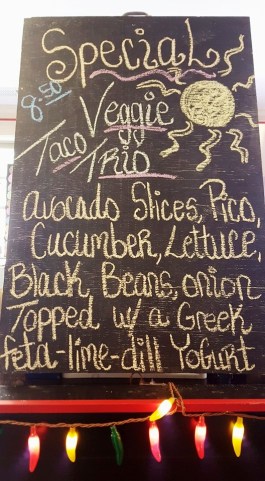 Special
8.50
Veggie
Taco Trio
avocado Slices, Pico,
Cucumber, Lettuce,
Black Beans, onion
Topped w/ a Greek
feta-lime-dill Yogurt